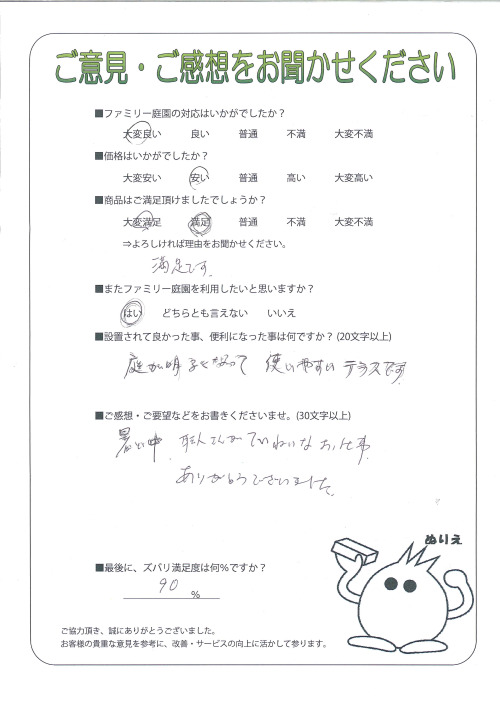 ご意見・ご感想をお聞かせください
■ファミリー庭園の対応はいかがでしたか？
大変良い 良い 普通 不満 大変不満
■価格はいかがでしたか？
大変安い 安い 普通 高い 大変高い
■商品はご満足頂けましたでしょうか？
大変満足 満足 普通 不満 大変不満
⇒よろしければ理由をお聞かせください。
満足です。
■またファミリー庭園を利用したいと思いますか？
はい どちらとも言えない いいえ
■設置されて良かった事、便利になった事は何ですか？(20文字以上)
庭が明るくなって 使いやすい テラスです
■ご感想・ご要望などをお書きくださいませ。(30文字以上)
暑い中、職人さんがていねいなお仕事
ありがとうございました。
ぬりえ
■最後に、ズバリ満足度は何%ですか？
90 %
ご協力頂き、誠にありがとうございました。
お客様の貴重な意見を参考に、改善・サービスの向上に活かして参ります。